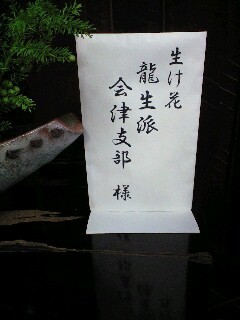 生け花
龍生派
会津支部 様